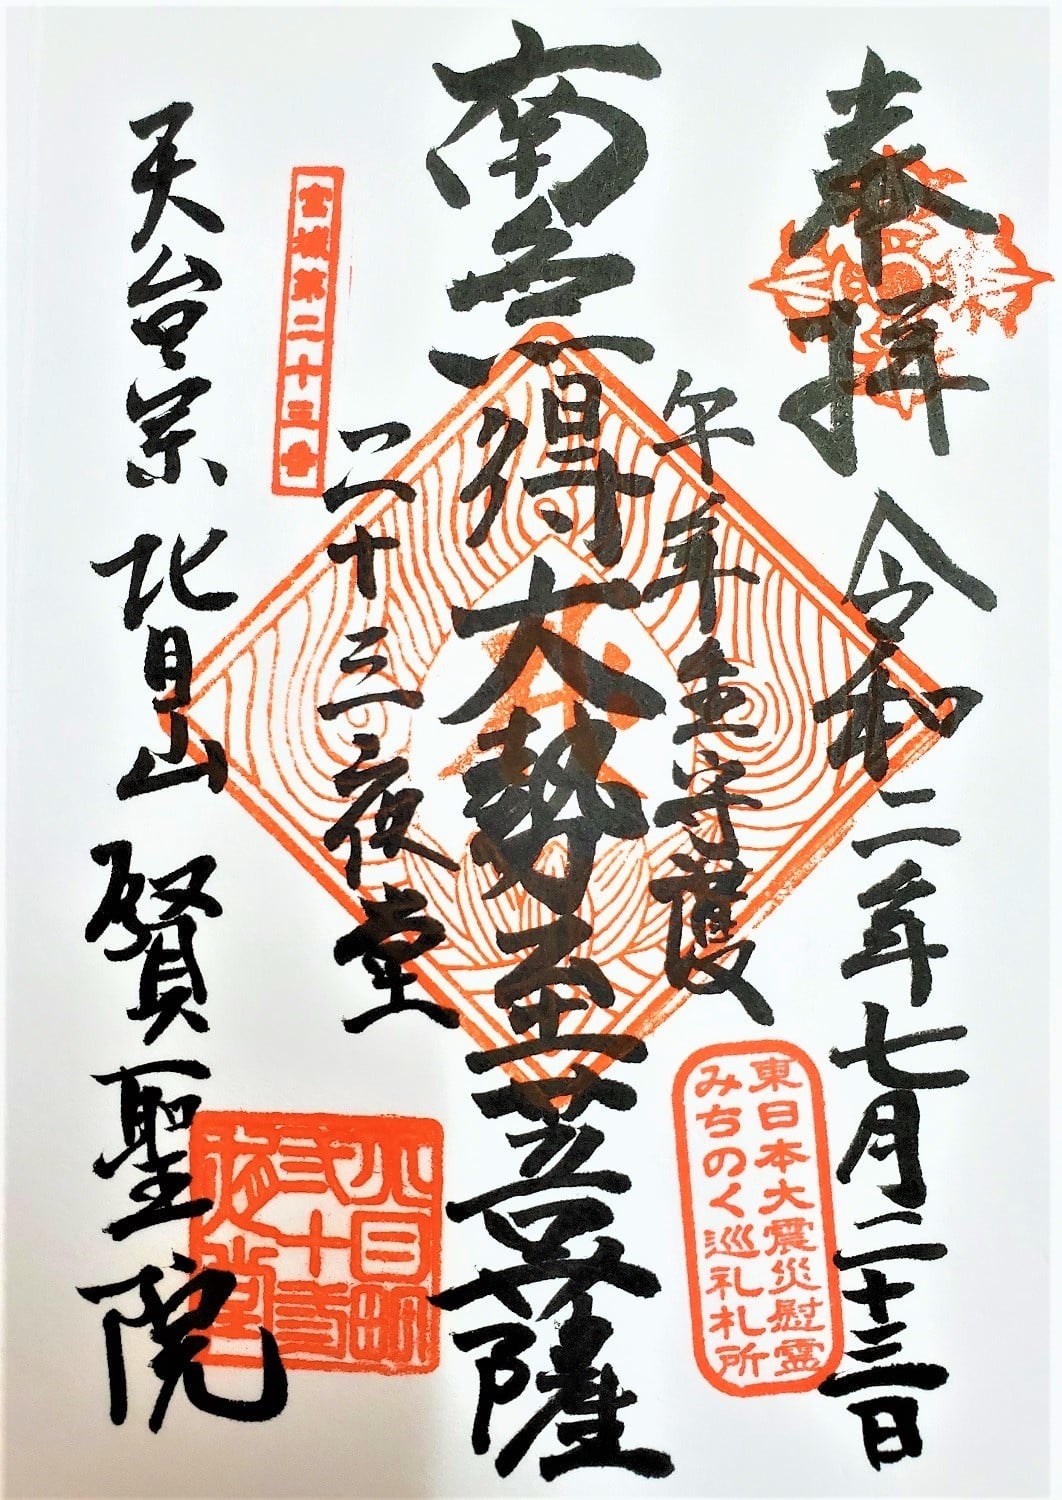 奉拝 令和二年七月二十三日
東日本大震災慰霊
みちのく巡礼札所
午年生守護
南無得大勢至菩薩
二十三夜堂
宮城第二十三番
天台宗 北目山 賢聖院